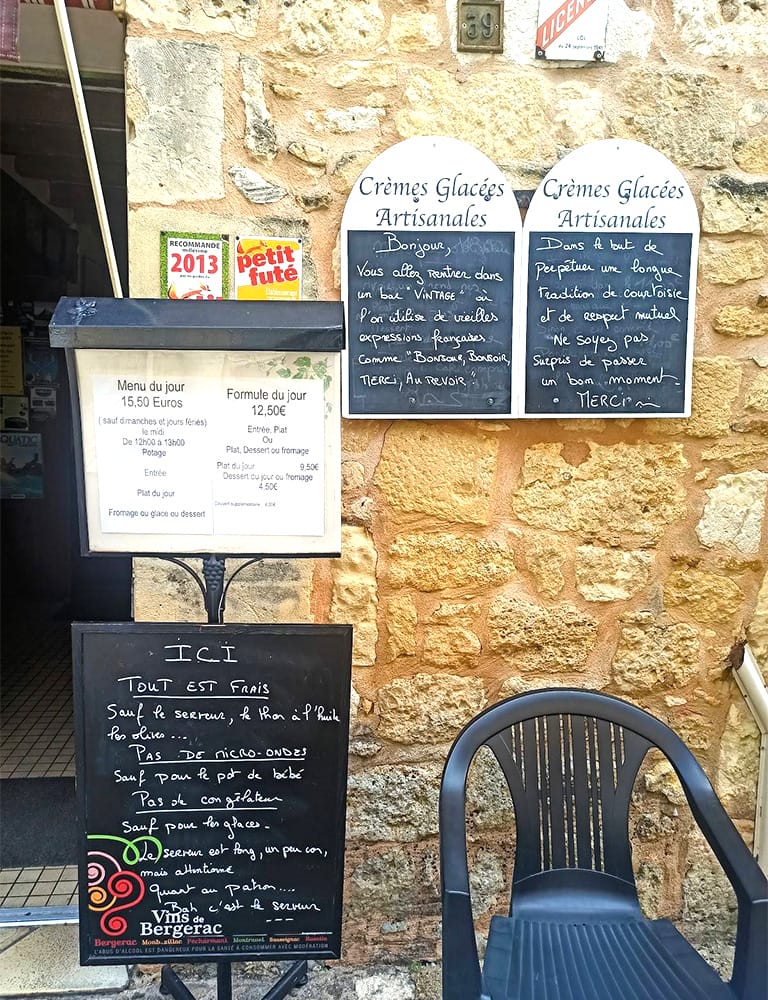 39
LICENCE
RECOMMANDÉ
millésime
2013
petit
futé
Crèmes Glacées
Artisanales
Bonjour,
Vous allez rentrer dans
un bar "VINTAGE" où
l'on utilise de vieilles
expressions françaises
comme "BONJOUR, BONSOIR,
MERCI, AU REVOIR"!
Crèmes Glacées
Artisanales
Dans le but de
perpétuer une longue
tradition de courtoisie
et de respect mutuel
Ne soyez pas
surpris de passer
un bon moment
MERCI
Menu du jour
15,50 Euros
( sauf dimanches et jours fériés)
le midi
De 12h00 à 13h00
Potage
Entrée
Plat du jour
Fromage ou glace ou dessert
Formule du jour
12,50€
Entrée, Plat
Ou
Plat, Dessert ou fromage
Plat du jour 9,50€
Dessert du jour ou fromage
4,50€
Couvert supplémentaire
ICI
TOUT EST FRAIS
Sauf le serveur, le thon à l'huile
les olives ...
PAS DE MICRO-ONDES
Sauf pour le pot de bébé
Pas de congélateur
Sauf pour les glaces -
Le serveur est long, un peu con,
mais attentionné
quant au patron....
Bah c'est le serveur
---
Vins de
Bergerac
Bergerac Monbazillac Pécharmant Montravel Saussignac Rosette
L'ABUS D'ALCOOL EST DANGEREUX POUR LA SANTÉ À CONSOMMER AVEC MODÉRATION